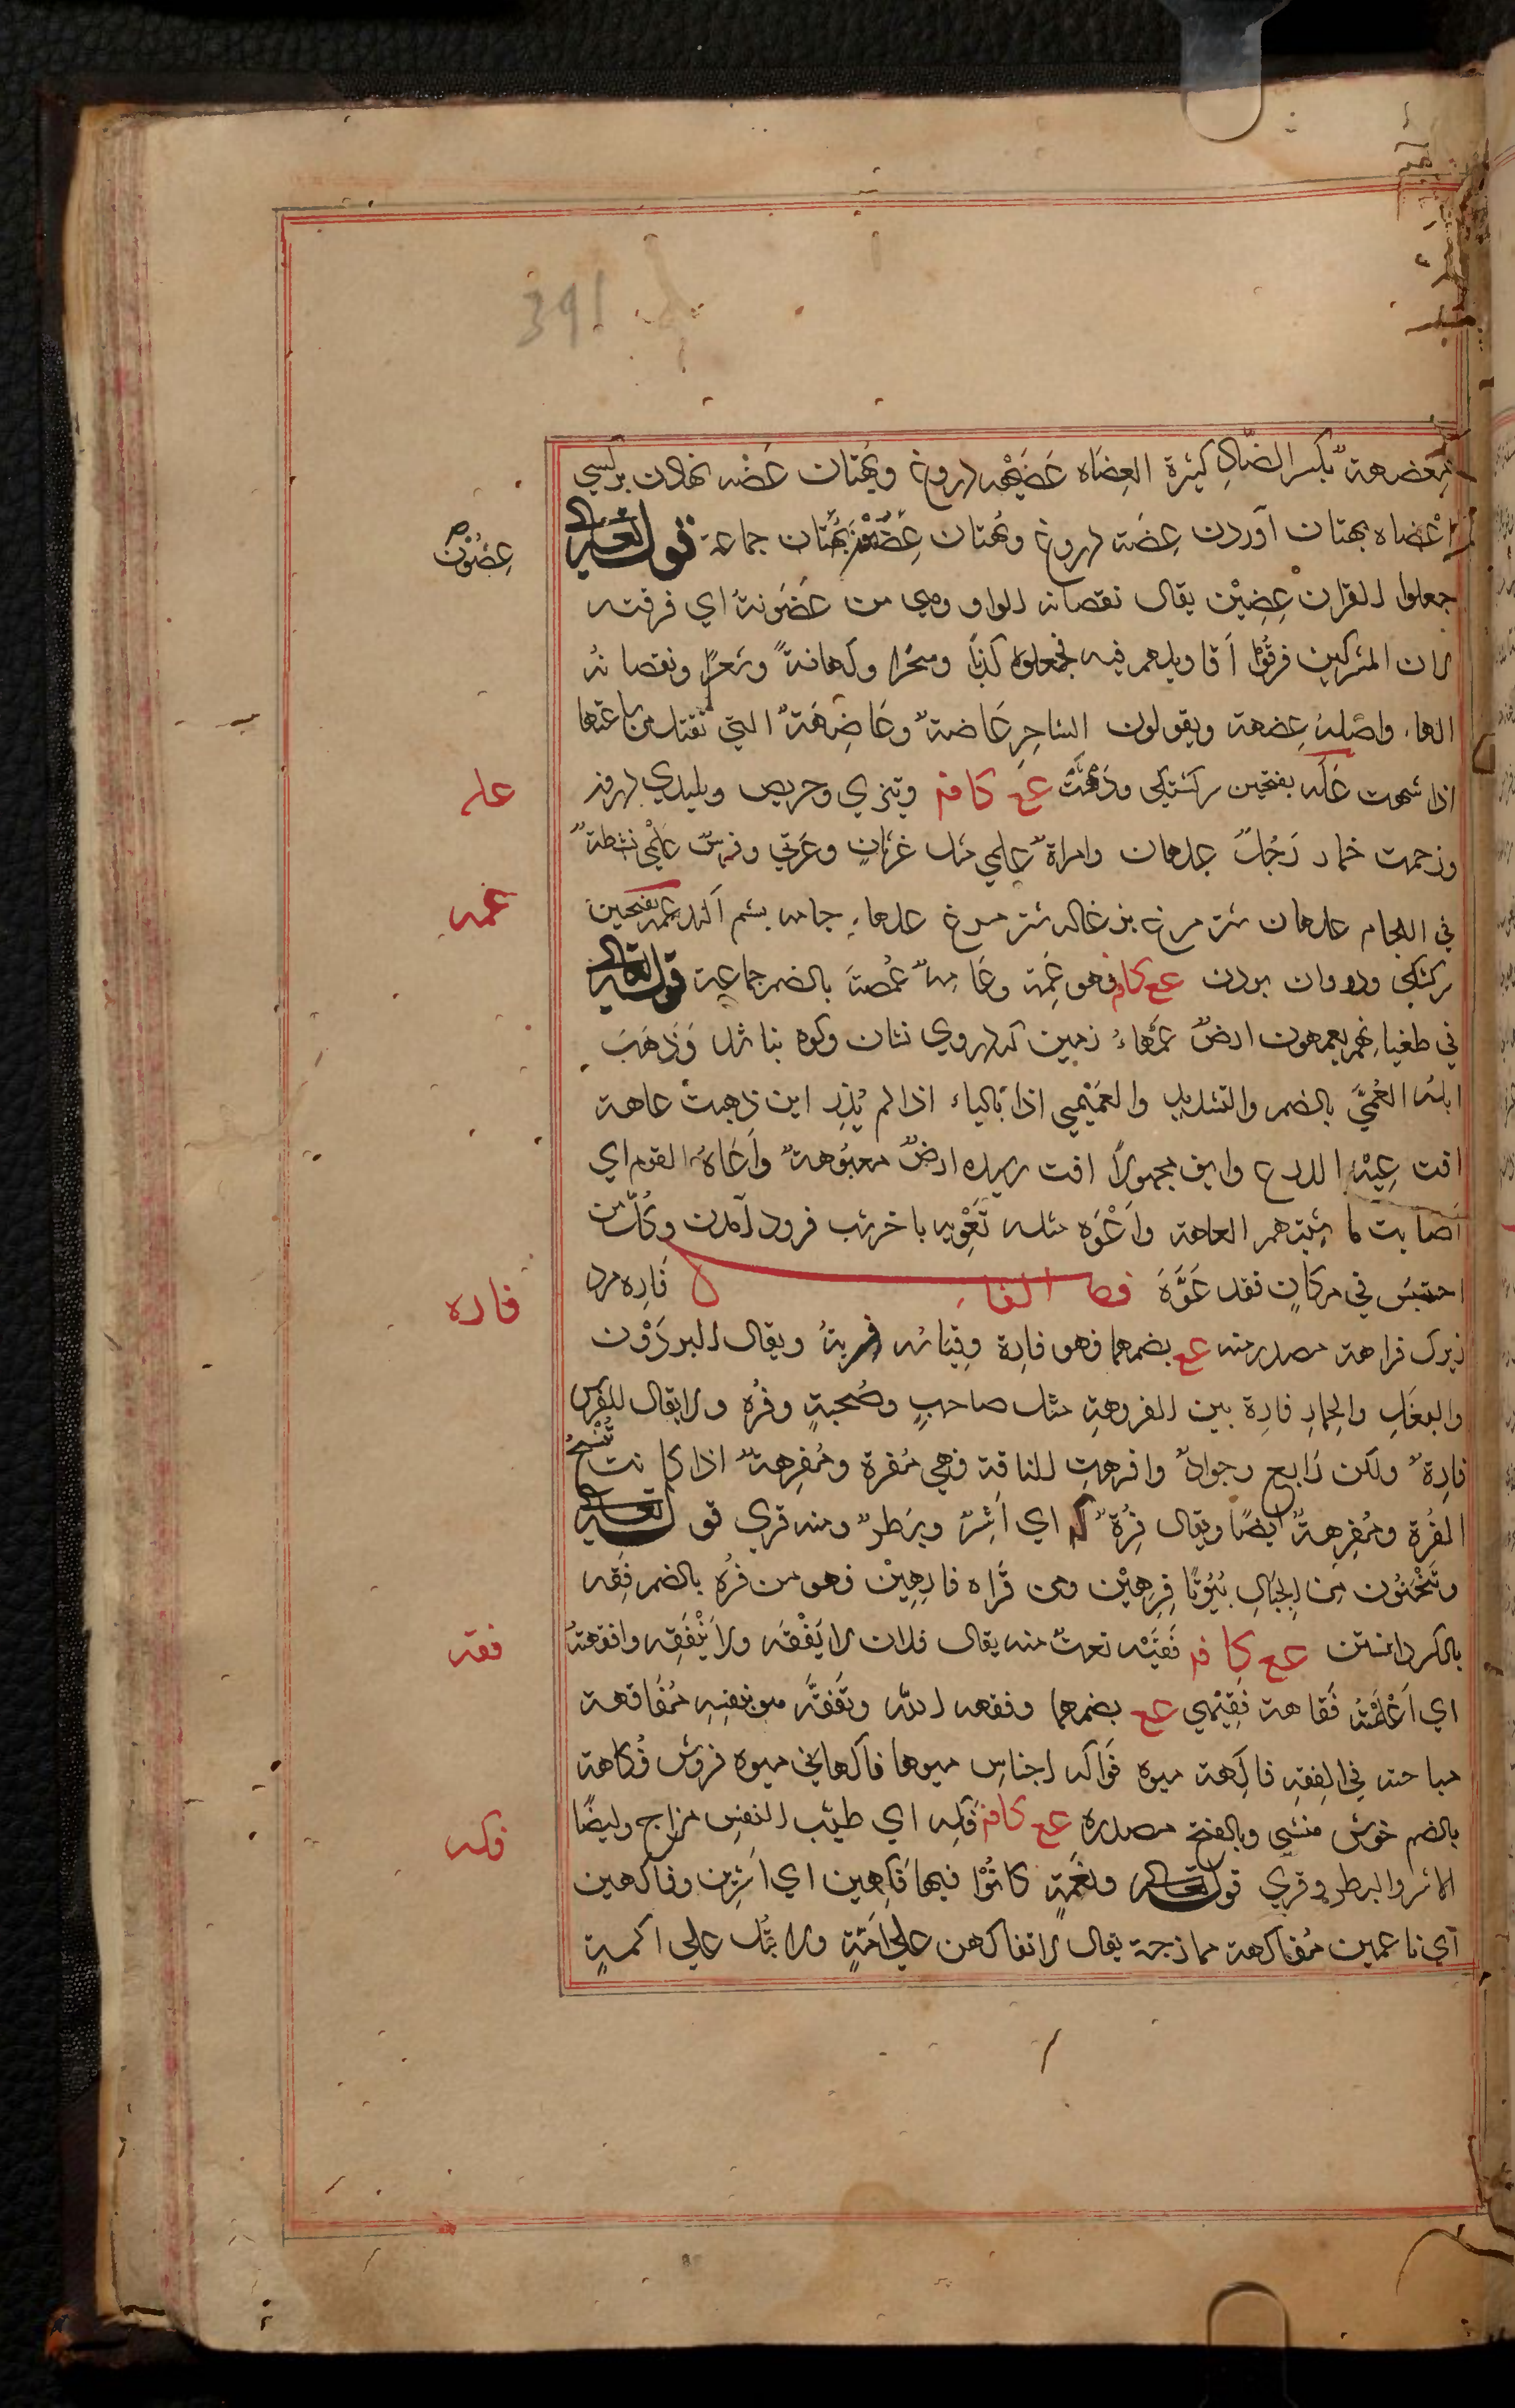 391
معضهة بكسر الضاد كثيرة العضاه عَضِيْهه دروغ وبهتان عضه نهادن بر كسي
اعضاه بهتان آوردن عِضَه دروغ وبهتان عِضُوْن بهتان جماعة قوله تعالى
عِضُوْن
جعلوا القران عِضِيْن يقال نقصانه الواو وهي من عَضَوتهُ اي فرقته
لان المشركين فرقُوا أقاويلهم فيه فجعلوه كذبًا وسحرًا وكهانةً وشعرًا ونقصانهُ
الهاء واصله عِضهة ويقولون الساحِر عَاضة وعَاضِهَة التي تقتل من ساعتها
اذا نهشت عَلَه بفتحين سركشتكي ودَهْشَت عع كا فه وتيزي وحريص وپليدي
عله
وزحمت خمار رَجُلٌ علهان وامراة علهي مثل غرثان وغرثي وفرسٌ عَلْهى نشطة
في اللجام علهان شتر مرغ نر علهاء جامه پشم آكنده عمه بفتحين
عمه
سركشتكي ودو وان بودن عع كا فه فهو عَمِه وعَامِهٌ عُمَّه بالضم جماعة قوله تعالى
في طغيانهم يعمهون ارضٌ عَمْهاءُ زمين كه دروي نشان وكوه نباشد وَذَهَبَ
ابلُه العُمَّهَي بالضم والتشديد والعُمَّيْهي اذا بالياء اذا لم يُدْر اين ذهبتْ عاهة
افت عِيْه الزرع وايف مجهولًا افت رسيده ارضٌ معيُوهة وأَعَاهَ القوم اي
أصابت ماشيتهم العاهة وأَعْوَه مثله تَعْوِيه باخر شب فرود آمدن وكُلّ من
احتبسَ في مكانٍ فقد عَوَّهَ فصل الفاء فَارِه مرد
فاره
زيرك فراهة مصدر منه عع بضمهما فهو فارِهٌ وقيانه ويقال للبرذَوْن
والبغلِ والحمارِ فارِهٌ بين الفروهةِ مثل صاحبٍ وصُحبةٍ وفُرُه ولا يقال للفرس
فارِهٌ ولكن رَايع وجوادٌ وافرهتِ الناقة فهي مُفرِهٌ ومُفرِهةٌ اذا كانت تُنْتِجُ
الفُرْهَ ومُفرِهةٌ ايضًا ويقال فَرِهٌ اي أَشِرٌ وبَطِرٌ ومنه قري قوله تعالى
وتَنْحِتُون مِن الجبالِ بُيُوتًا فَرِهِيْن ومن قَراه فارِهِيْن فهو من فَرُه بالضم فِقه
بالكسر دانستن عع كا فه فَقِيْه نعتٌ منه يقال فلان لا يَفْقَه ولا يَنْقَه وافقهتهُ
فقه
اي أَعْلَمْتُه فَقاهة فَقِيْهي عع بضمهما وفقهه الله وتَفَقَّه هو بنفسِه مُفَاقهة
مباحثه في الفِقهِ فاكِهة ميوه فَوَاكه اجناسِ ميوها فاكهاني ميوه فروش فُكاهة
بالضم خوش منشي وبالفتح مصدره عع كا فه فَكِه اي طيّب النفس مزّاح وايضًا
فكه
الاشر والبطر وقري قوله تعالى ونَعْمَةٍ كانُوْا فيها فَكِهين اي أشِرِين وفاكهين
اي ناعمين مُفاكهة ممازجة يقال لا تفاكهن على أَمَةٍ ولا تَبُل على اكمةٍ